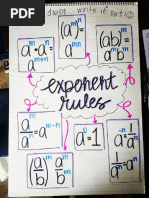 write it out
(aᵐ)ⁿ=
aᵐⁿ
aᵐ·aⁿ=
aᵐ⁺ⁿ
(ab)ᵐ=
aᵐbᵐ
exponent
rules
aᵐ/aⁿ=aᵐ⁻ⁿ
a⁰=1
a⁻ⁿ=1/aⁿ
(a/b)ᵐ=aᵐ/bᵐ